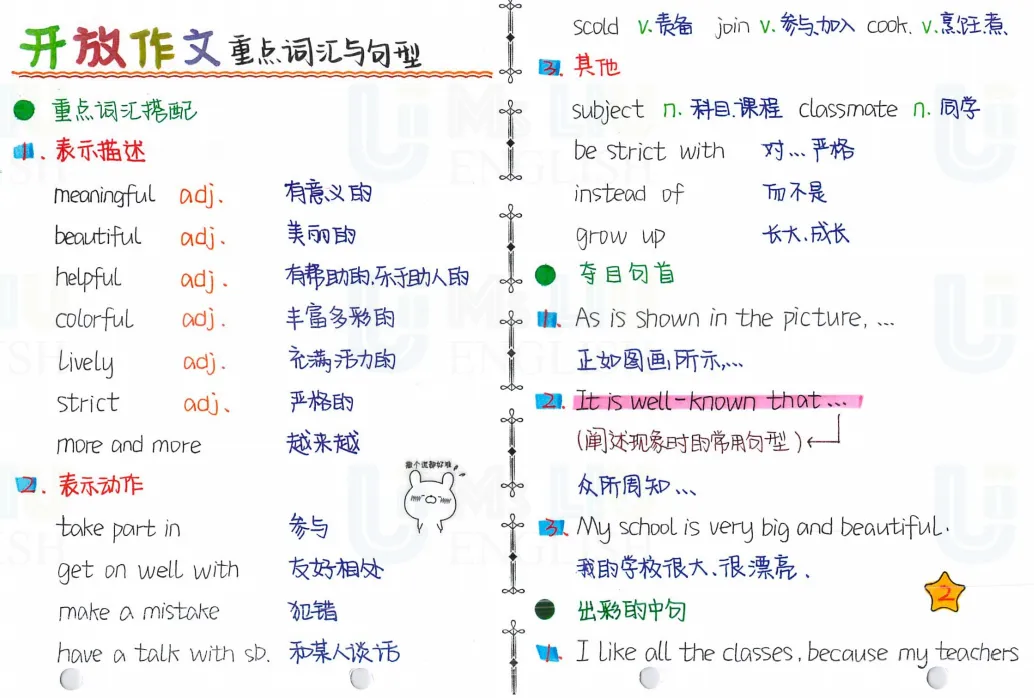 开放作文 重点词汇与句型
重点词汇搭配
1. 表示描述
meaningful adj. 有意义的
beautiful adj. 美丽的
helpful adj. 有帮助的,乐于助人的
colorful adj. 丰富多彩的
lively adj. 充满活力的
strict adj. 严格的
more and more 越来越
2. 表示动作
take part in 参与
get on well with 友好相处
make a mistake 犯错
have a talk with sb. 和某人谈话
scold v.责备 join v.参与,加入 cook. v.烹饪.煮
3. 其他
subject n. 科目.课程 classmate n. 同学
be strict with 对...严格
instead of 而不是
grow up 长大.成长
夺目句首
1. As is shown in the picture, ...
正如图画所示,...
2. It is well-known that...
(阐述现象时的常用句型)
众所周知...
3. My school is very big and beautiful.
我的学校很大、很漂亮.
2
出彩的中句
1. I like all the classes, because my teachers